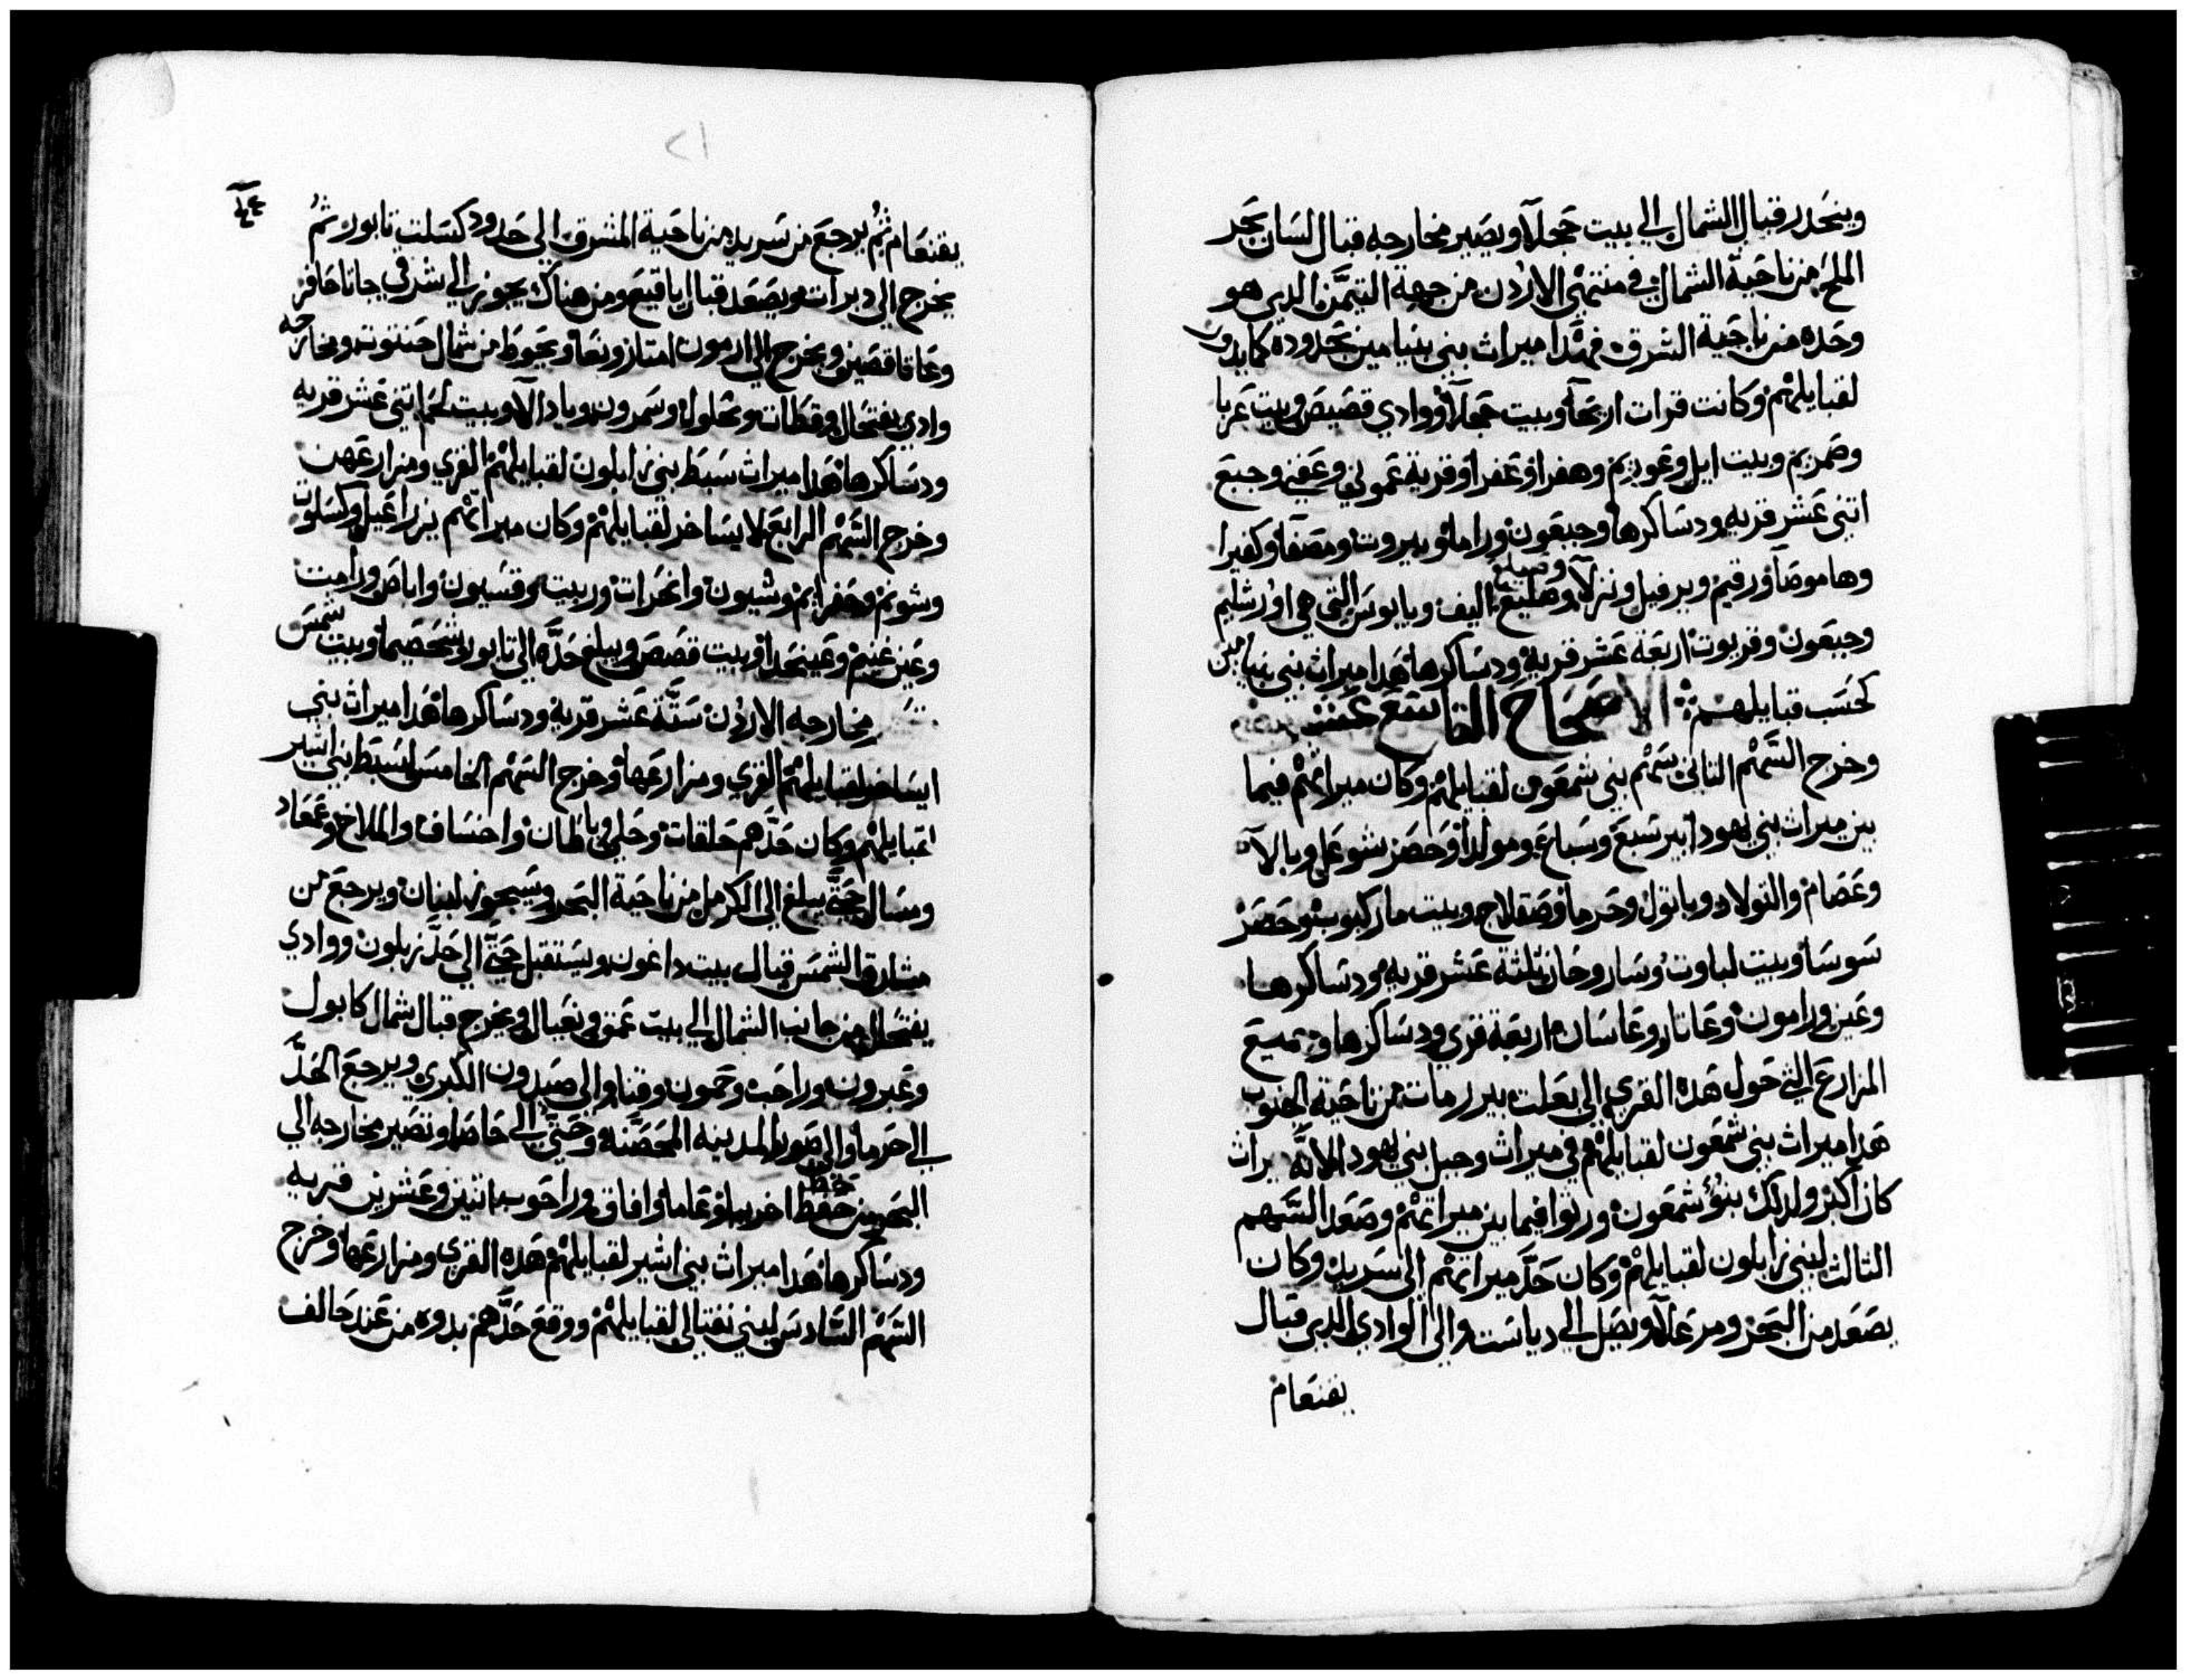 وينحدر قبال الشمال الي بيت حجلا ويصير مخارجه قبال لسان بحر
الملح من ناحية الشمال في منتهي الاردن من جهة التيمن الدي هو
وحده من ناحية الشرق فهدا ميراث بني بنيامين بحدوده كما يدور
لقبايلهم وكانت قرات اريحا وبيت حجلا ووادي قصيص وبيت عربا
وصمريم وبيت ايل وعويم وهفرا وعفرا وقرية عموني وعفني وجبع
اتني عشر قريه ودساكرها وجبعون وراما وبيروت ومصفا وكفيرا
وهاموصا ورقيم ويرفيل وترلا وصليع اليف ويابوس التي هي اورشليم
وجبعون وقريوت اربعة عشر قرية ودساكرها هدا ميراث بني بنيامين
كحسب قبايلهم الاصحاح التاسع عشر
وخرج السهم التاني سهم بني شمعون لقبايلهم وكان ميراتهم فيما
بين ميراث بني يهودا بير سبع وسباع ومولدا وحصر شوعل وبالا
وعصام والتولاد وباتول وحرما وصقلاج وبيت ماركبوت وحصر
سوسا وبيت لباوت وساروحان تلتة عشر قريه ودساكرها
وعين ورامون وعاتار وعاسان اربعة قري ودساكرها وجميع
المزارع التي حول هده القري الي بعلت بير رمات من ناحية الجنوب
هدا ميراث بني شمعون لقبايلهم في ميراث وحبل بني يهودا لانه يراث
كان اكتر ولدلك بنو شمعون ورتوا فيما بين ميراتهم وصعد السهم
التالت لبني زابلون لقبايلهم وكان حد ميراتهم الي سريد وكان
يصعد من البحر ومرعلا ويصل الي دياست والي الوادي الدي قبال
يقنعام
يقنعام تم يرجع من سريد من ناحية المشرق الي حدود كسلت تابور تم
يخرج الي دبرات ويصعد قبال يافيع ومن هناك يجوز الي شرقي جاتا حافر
وعاتا قصين ويخرج الي ارمون امتار ونعا ويحوط من شمال حنتون ومخارجه
وادي يفتحال وقطات ونحلول وسمرون ويادالا وبيت لحم اتني عشر قريه
ودساكرها هدا ميراث سبط بني زابلون لقبايلهم القري ومزارعهن
وخرج السهم الرابع لايساخر لقبايلهم وكان ميراتهم يزراعيل وكسلوت
وشونم وحفرايم وشيون وانحرات وربيت وقسيون واباص ورامت
وعين غنيم وعين حدا وبيت قصص ويبلغ حده الي تابور وشحصيما وبيت شمس
مخارجه الاردن ستة عشر قرية ودساكرها هدا ميراث بني
ايساخر لقبايلهم القري ومزارعها وخرج السهم الخامس لسبط بني اشير
لقبايلهم وكان حدهم حلقات وحلي وباطان واحساف والملاخ وعمعاد
ومسال حتي يبلغ الي الكرمل من ناحية البحر وسيحور لبنان ويرجع من
مشارق الشمس قبال بيت داغون ويستقبل حتي الي حد زبلون ووادي
يفتحال من جانب الشمال الي بيت عمق ونعيال ويخرج قبال شمال كابول
وعبرون وراحب وحمون وقنا والي صيدون الكبري ويرجع الحد
الي حرما والي صور المدينه المحصنه وحتي الي حاصا وتصير مخارجه الي
البحر من حفظ اخريبا وعاما وافاق وراحوب اتنين وعشرين قريه
ودساكرها هدا ميراث بني اشير لقبايلهم هده القري ومزارعها وخرج
السهم السادس لبني نفتالي لقبايلهم ووقع حدهم بدوه من عند حالف